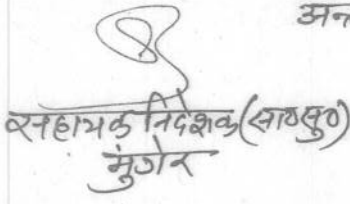 अन
सहायक निदेशक (सा०सु०)
मुंगेर